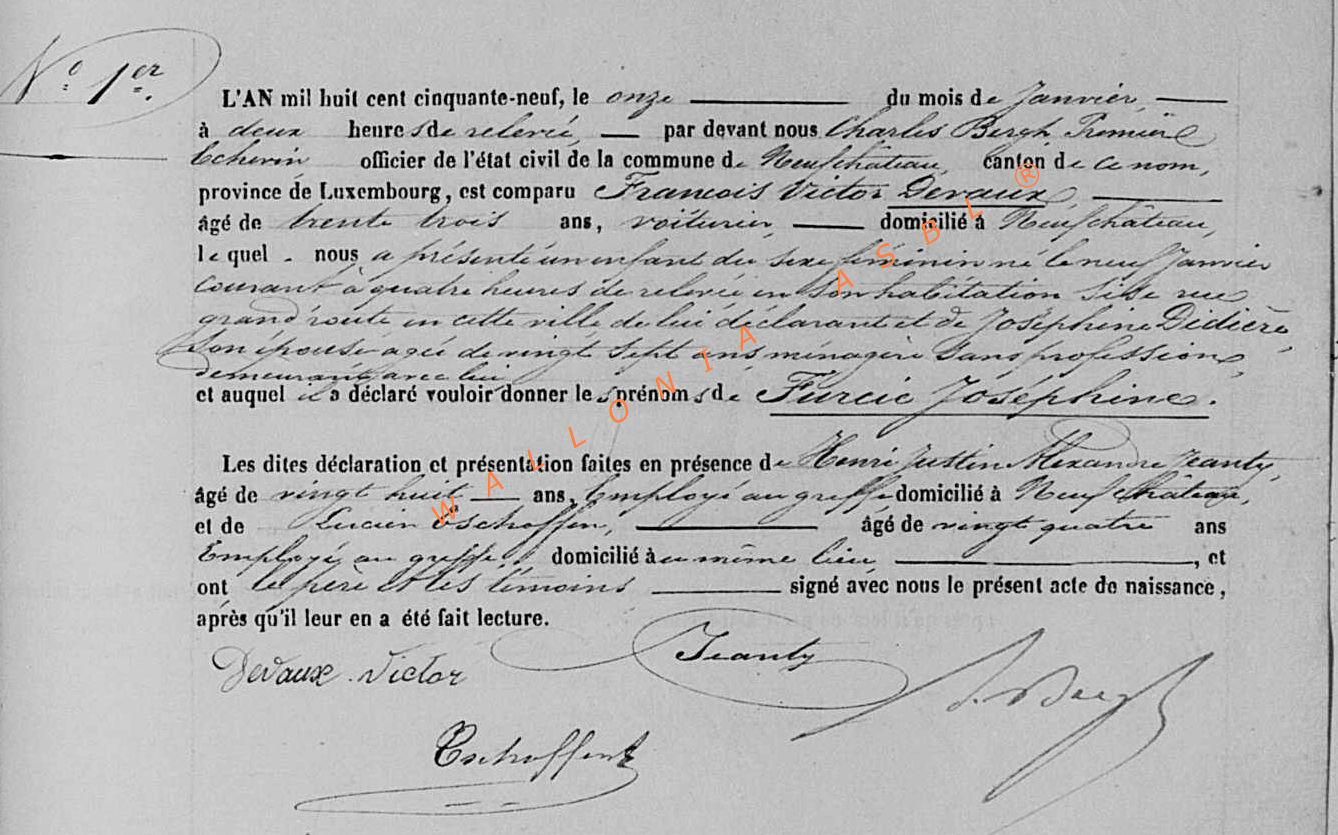 N.° 1.er
L'AN mil huit cent cinquante-neuf, le onze du mois de Janvier,
à deux heures de relevée, par devant nous Charles Bergh Première
Echevin officier de l'état civil de la commune de Neufchâteau, canton de ce nom,
province de Luxembourg, est comparu François Victor Devaux,
âgé de trente trois ans, voiturier, domicilié à Neufchâteau,
lequel nous a présenté un enfant du sexe féminin né le neuf Janvier
courant à quatre heures de relevée en son habitation sise rue
grand'route en cette ville de lui déclarant et de Joséphine Didière,
son épouse agée de vingt sept ans ménagère sans profession,
demeurant avec lui
et auquel il a déclaré vouloir donner les prénoms de Furcie Joséphine.
Les dites déclaration et présentation faites en présence de Henri Justin Alexandre Jeanty,
âgé de vingt huit ans, Employé au greffe domicilié à Neufchâteau,
et de Lucien Eschoffen, âgé de vingt quatre ans
Employé au greffe, domicilié au même lieu, et
ont le père et les témoins signé avec nous le présent acte de naissance,
après qu'il leur en a été fait lecture.
Devaux Victor
Jeanty
Bergh
WALLONIA ASBL ®